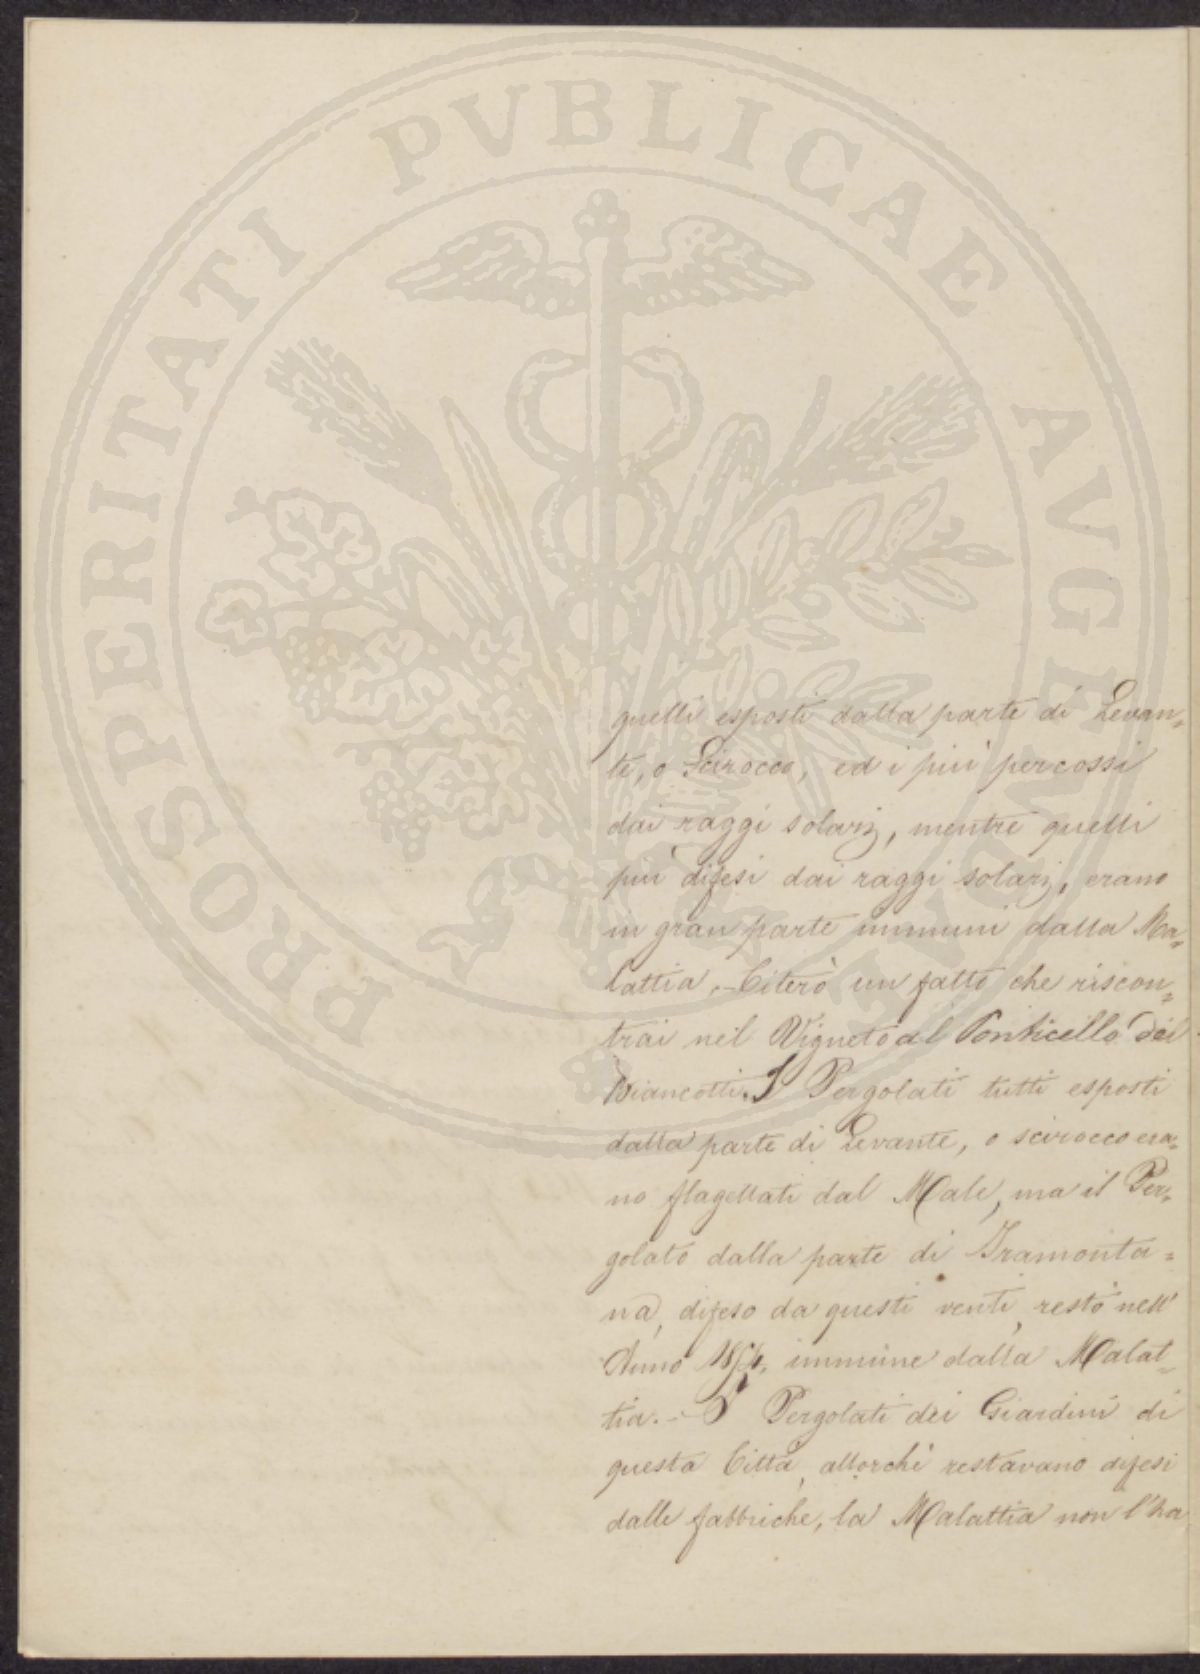 PROSPERITATI PVBLICAE AVGENDAE
quelli esposti dalla parte di Levan=
te, o Scirocco, ed i più percossi
dai raggi solarj, mentre quelli
più difesi dai raggi solarj, erano
in gran parte immuni dalla Ma=
lattia. - Citerò un fatto che riscon=
trai nel Vigneto al Ponticello dei
Biancotti. I Pergolati tutti esposti
dalla parte di Levante, o scirocco era=
no flagellati dal Male, ma il Per=
golato dalla parte di Tramonta=
na, difeso da questi venti, restò nell'
Anno immune dalla Malat=
tia. - I Pergolati dei Giardini di
questa Città, allorchè restavano difesi
dalle fabbriche, la Malattia non l'ha